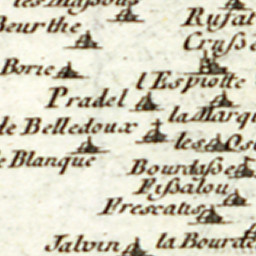 les Massous
Beurthe
Rusat
Crusse
Borie
l'Espiotte
Pradel
la Marqu
de Belledoux
les Os
le Blanque
Bourdasse
Fissalou
Frescatis
Jalvin
la Bourde